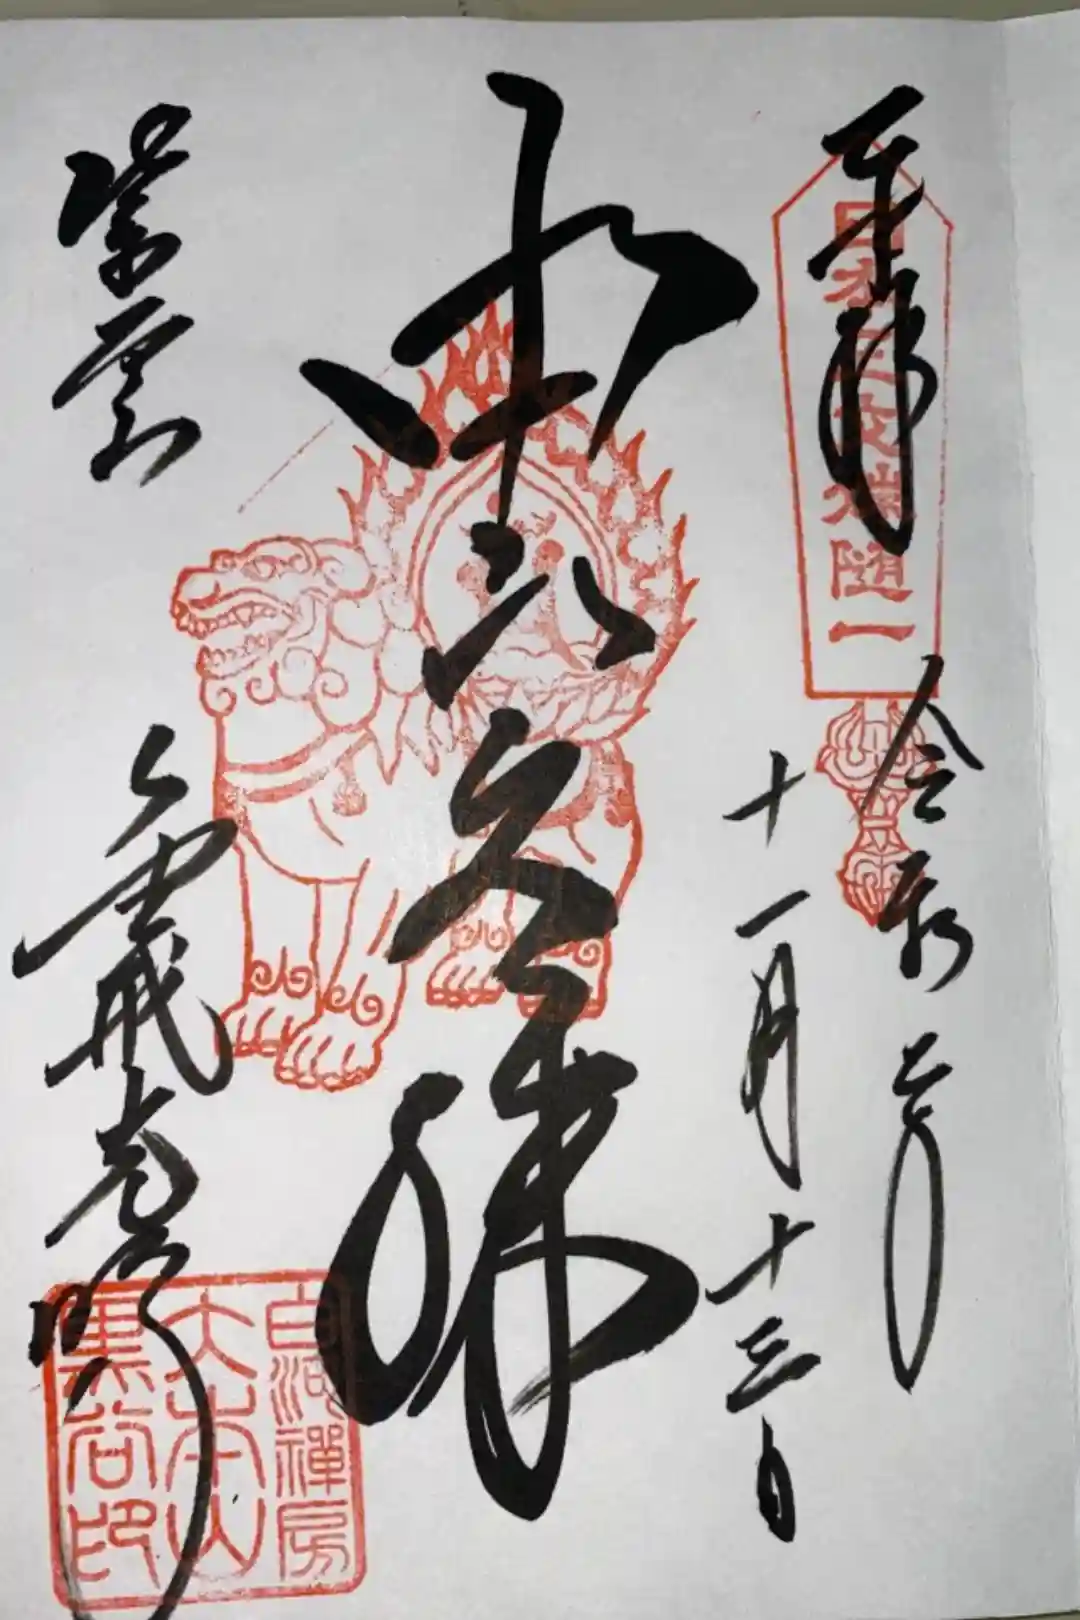 奉拝
日本三文殊随一
令和 年
十一月十三日
中山文殊
紫雲山
金戒光明寺
白河禪房
大本山
黒谷印